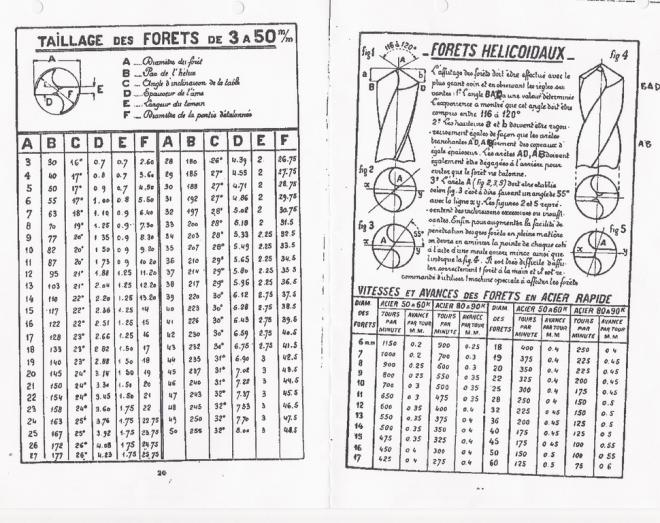 TAILLAGE DES FORETS DE 3 A 50 m/m
A _ Diamètre du forêt
B _ Pas de l'hélice
C _ Angle d'inclinaison de la table
D _ Epaisseur de l'âme
E _ Largeur du témoin
F _ Diamètre de la partie détalonnée
A B C D E F A B C D E F
3 30 16° 0.7 0.7 2.60 28 180 26° 4.39 2 26.75
4 40 17° 0.8 0.7 3.60 29 185 27° 4.55 2 27.75
5 50 17° 0.9 0.7 4.50 30 188 27° 4.71 2 28.75
6 55 17° 1.00 0.8 5.50 31 192 27° 4.86 2 29.75
7 63 18° 1.10 0.9 6.40 32 197 28° 5.02 2 30.75
8 70 19° 1.25 0.9 7.30 33 200 28° 5.18 2 31.5
9 77 20° 1.35 0.9 8.30 34 203 28° 5.33 2.25 32.5
10 82 20° 1.50 0.9 9.20 35 207 28° 5.49 2.25 33.5
11 87 20° 1.73 0.9 10.20 36 210 29° 5.65 2.25 34.5
12 95 21° 1.88 1.25 11.20 37 214 29° 5.80 2.25 35.5
13 103 21° 2.04 1.25 12.20 38 217 29° 5.96 2.25 36.5
14 110 22° 2.20 1.25 13.20 39 220 30° 6.12 2.75 37.5
15 117 22° 2.36 1.25 14 40 223 30° 6.28 2.75 38.5
16 122 22° 2.51 1.25 15 41 226 30° 6.43 2.75 39.5
17 128 23° 2.66 1.25 16 42 230 30° 6.59 2.75 40.5
18 133 23° 2.82 1.50 17 43 232 30° 6.75 2.75 41.5
19 140 23° 2.98 1.50 18 44 235 31° 6.90 3 42.5
20 145 24° 3.14 1.50 19 45 237 31° 7.06 3 43.5
21 150 24° 3.30 1.50 20 46 240 31° 7.22 3 44.5
22 154 24° 3.45 1.50 21 47 243 32° 7.37 3 45.5
23 158 24° 3.60 1.75 22 48 245 32° 7.53 3 46.5
24 163 25° 3.76 1.75 22.75 49 250 32° 7.70 3 47.5
25 167 25° 3.92 1.75 23.75 50 255 32° 8.00 3 48.5
26 172 26° 4.08 1.75 24.75
27 177 26° 4.23 1.75 25.75
20
FORETS HELICOIDAUX
fig 1
116 à 120°
fig 4
L'affutage des forêts doit être effectué avec le
plus grand soin et en observant les règles sui-
vantes : 1° L'angle BAD a une valeur déterminée
L'expérience a montré que cet angle doit être
compris entre 116 à 120°
2° Les hauteurs a et b doivent être rigou-
reusement égales de façon que les arêtes
tranchantes AD, AB forment des copeaux d'
égale épaisseur. Les arêtes AD, AB doivent
également être dégagées à l'arrière pour
éviter que le forêt ne talonne.
3° L'arête A (fig 2, 3, 5) doit être établie
selon fig. 3 c'est à dire faisant un angle de 55°
avec la ligne x y. Les figures 2 et 5 repré-
sentent des inclinaisons excessives ou insuffi-
santes. Enfin pour augmenter la facilité de
pénétration des gros forêts en pleine matière
on devra en amincir la pointe de chaque côté
à l'aide d'une meule assez mince ainsi que
l'indique la fig. 4. Il est très difficile d'affu-
ter correctement 1 forêt à la main et il est re-
commandé d'utiliser 1 machine spéciale à affûter les forêts
fig 2
fig 3
55°
fig 5
VITESSES ET AVANCES DES FORETS EN ACIER RAPIDE
DIAM. DES FORETS ACIER 50 à 60 K ACIER 80 à 90 K DIAM. DES FORETS ACIER 50 à 60 K ACIER 80 à 90 K
TOURS PAR MINUTE AVANCE PAR TOUR M.M. TOURS PAR MINUTE AVANCE PAR TOUR M.M. TOURS PAR MINUTE AVANCE PAR TOUR M.M. TOURS PAR MINUTE AVANCE PAR TOUR M.M.
6 m.m 1150 0.2 900 0.25 18 400 0.4 250 0.4
7 1000 0.2 700 0.3 19 375 0.4 225 0.45
8 900 0.25 600 0.3 20 350 0.4 225 0.45
9 800 0.25 550 0.35 22 325 0.4 200 0.45
10 700 0.3 500 0.35 25 300 0.4 175 0.45
11 650 0.3 475 0.35 28 250 0.4 150 0.5
12 600 0.35 400 0.4 32 225 0.45 150 0.5
13 550 0.35 375 0.4 36 200 0.45 125 0.5
14 500 0.35 350 0.4 40 175 0.45 125 0.5
15 475 0.35 325 0.4 45 175 0.45 100 0.55
16 450 0.4 300 0.4 50 150 0.5 100 0.55
17 425 0.4 275 0.4 60 125 0.5 75 0.6